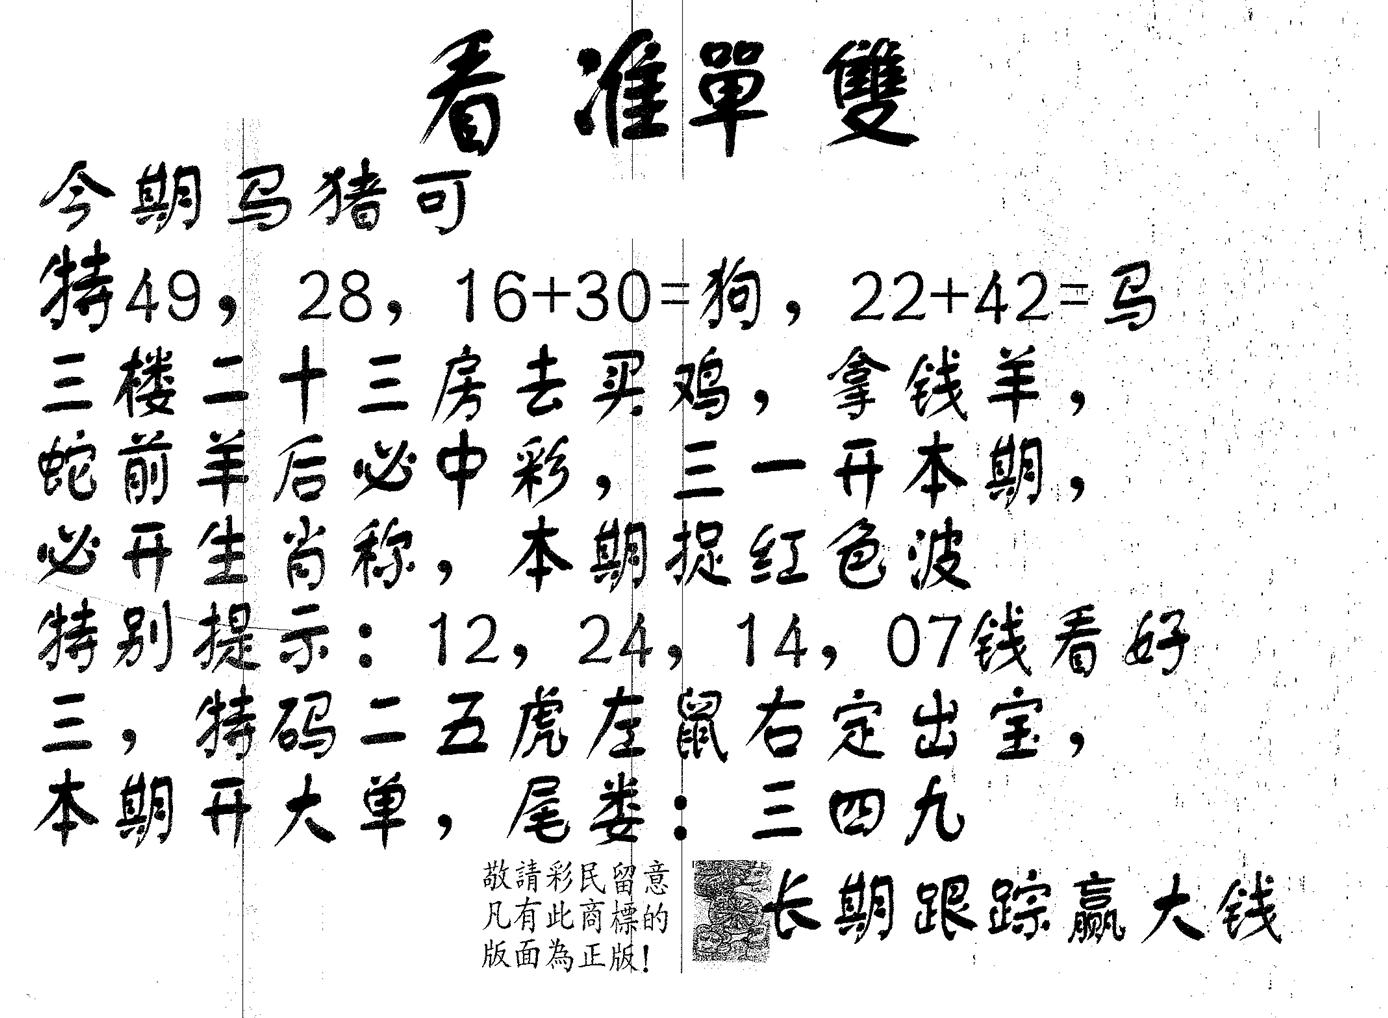 看准單雙
今期马猪可
特49，28，16+30=狗，22+42=马
三楼二十三房去买鸡，拿钱羊，
蛇前羊后必中彩，三一开本期，
必开生肖称，本期捉红色波
特别提示：12，24，14，07钱看好
三，特码二五虎左鼠右定出宝，
本期开大单，尾娄：三四九
敬請彩民留意
凡有此商標的
版面為正版！
长期跟踪赢大钱